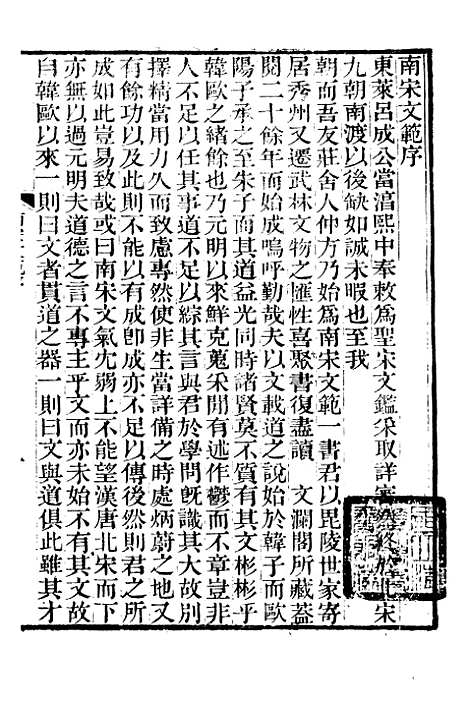 南宋文範序
東萊呂成公當湻熙中奉敕爲聖宋文鑑采取詳終於北宋
九朝南渡以後缺如誠未暇也至我
朝而吾友莊舍人仲方乃始爲南宋文範一書君以毘陵世家寄
居秀州又遷武林文物之匯性喜聚書復盡讀　文瀾閣所藏葢
閱二十餘年而始成嗚呼勤哉夫以文載道之說始於韓子而歐
陽子承之至朱子而其道益光同時諸賢莫不質有其文彬彬乎
韓歐之緒餘也乃元明以來鮮克蒐采閒有述作鬱而不章豈非
人不足以任其事道不足以綜其言與君於學問旣識其大故別
擇精當用力久而致慮專然使非生當詳備之時處炳蔚之地不
有餘功以及此不足以有成卽成亦不足以傳後然則君之所
成如此豈易致哉或曰南宋文氣冘弱上不能望漢唐北宋而下
亦無以過元明夫道德之言不專主乎文而亦未始不有其文故
自韓歐以來一則曰文者貫道之器一則曰文與道俱此雖其才